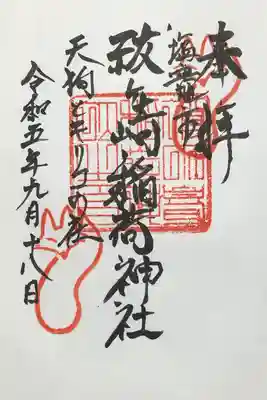 奉拝
塩竈市
祓ヶ崎稲荷神社
天狗と
令和五年九月十八日